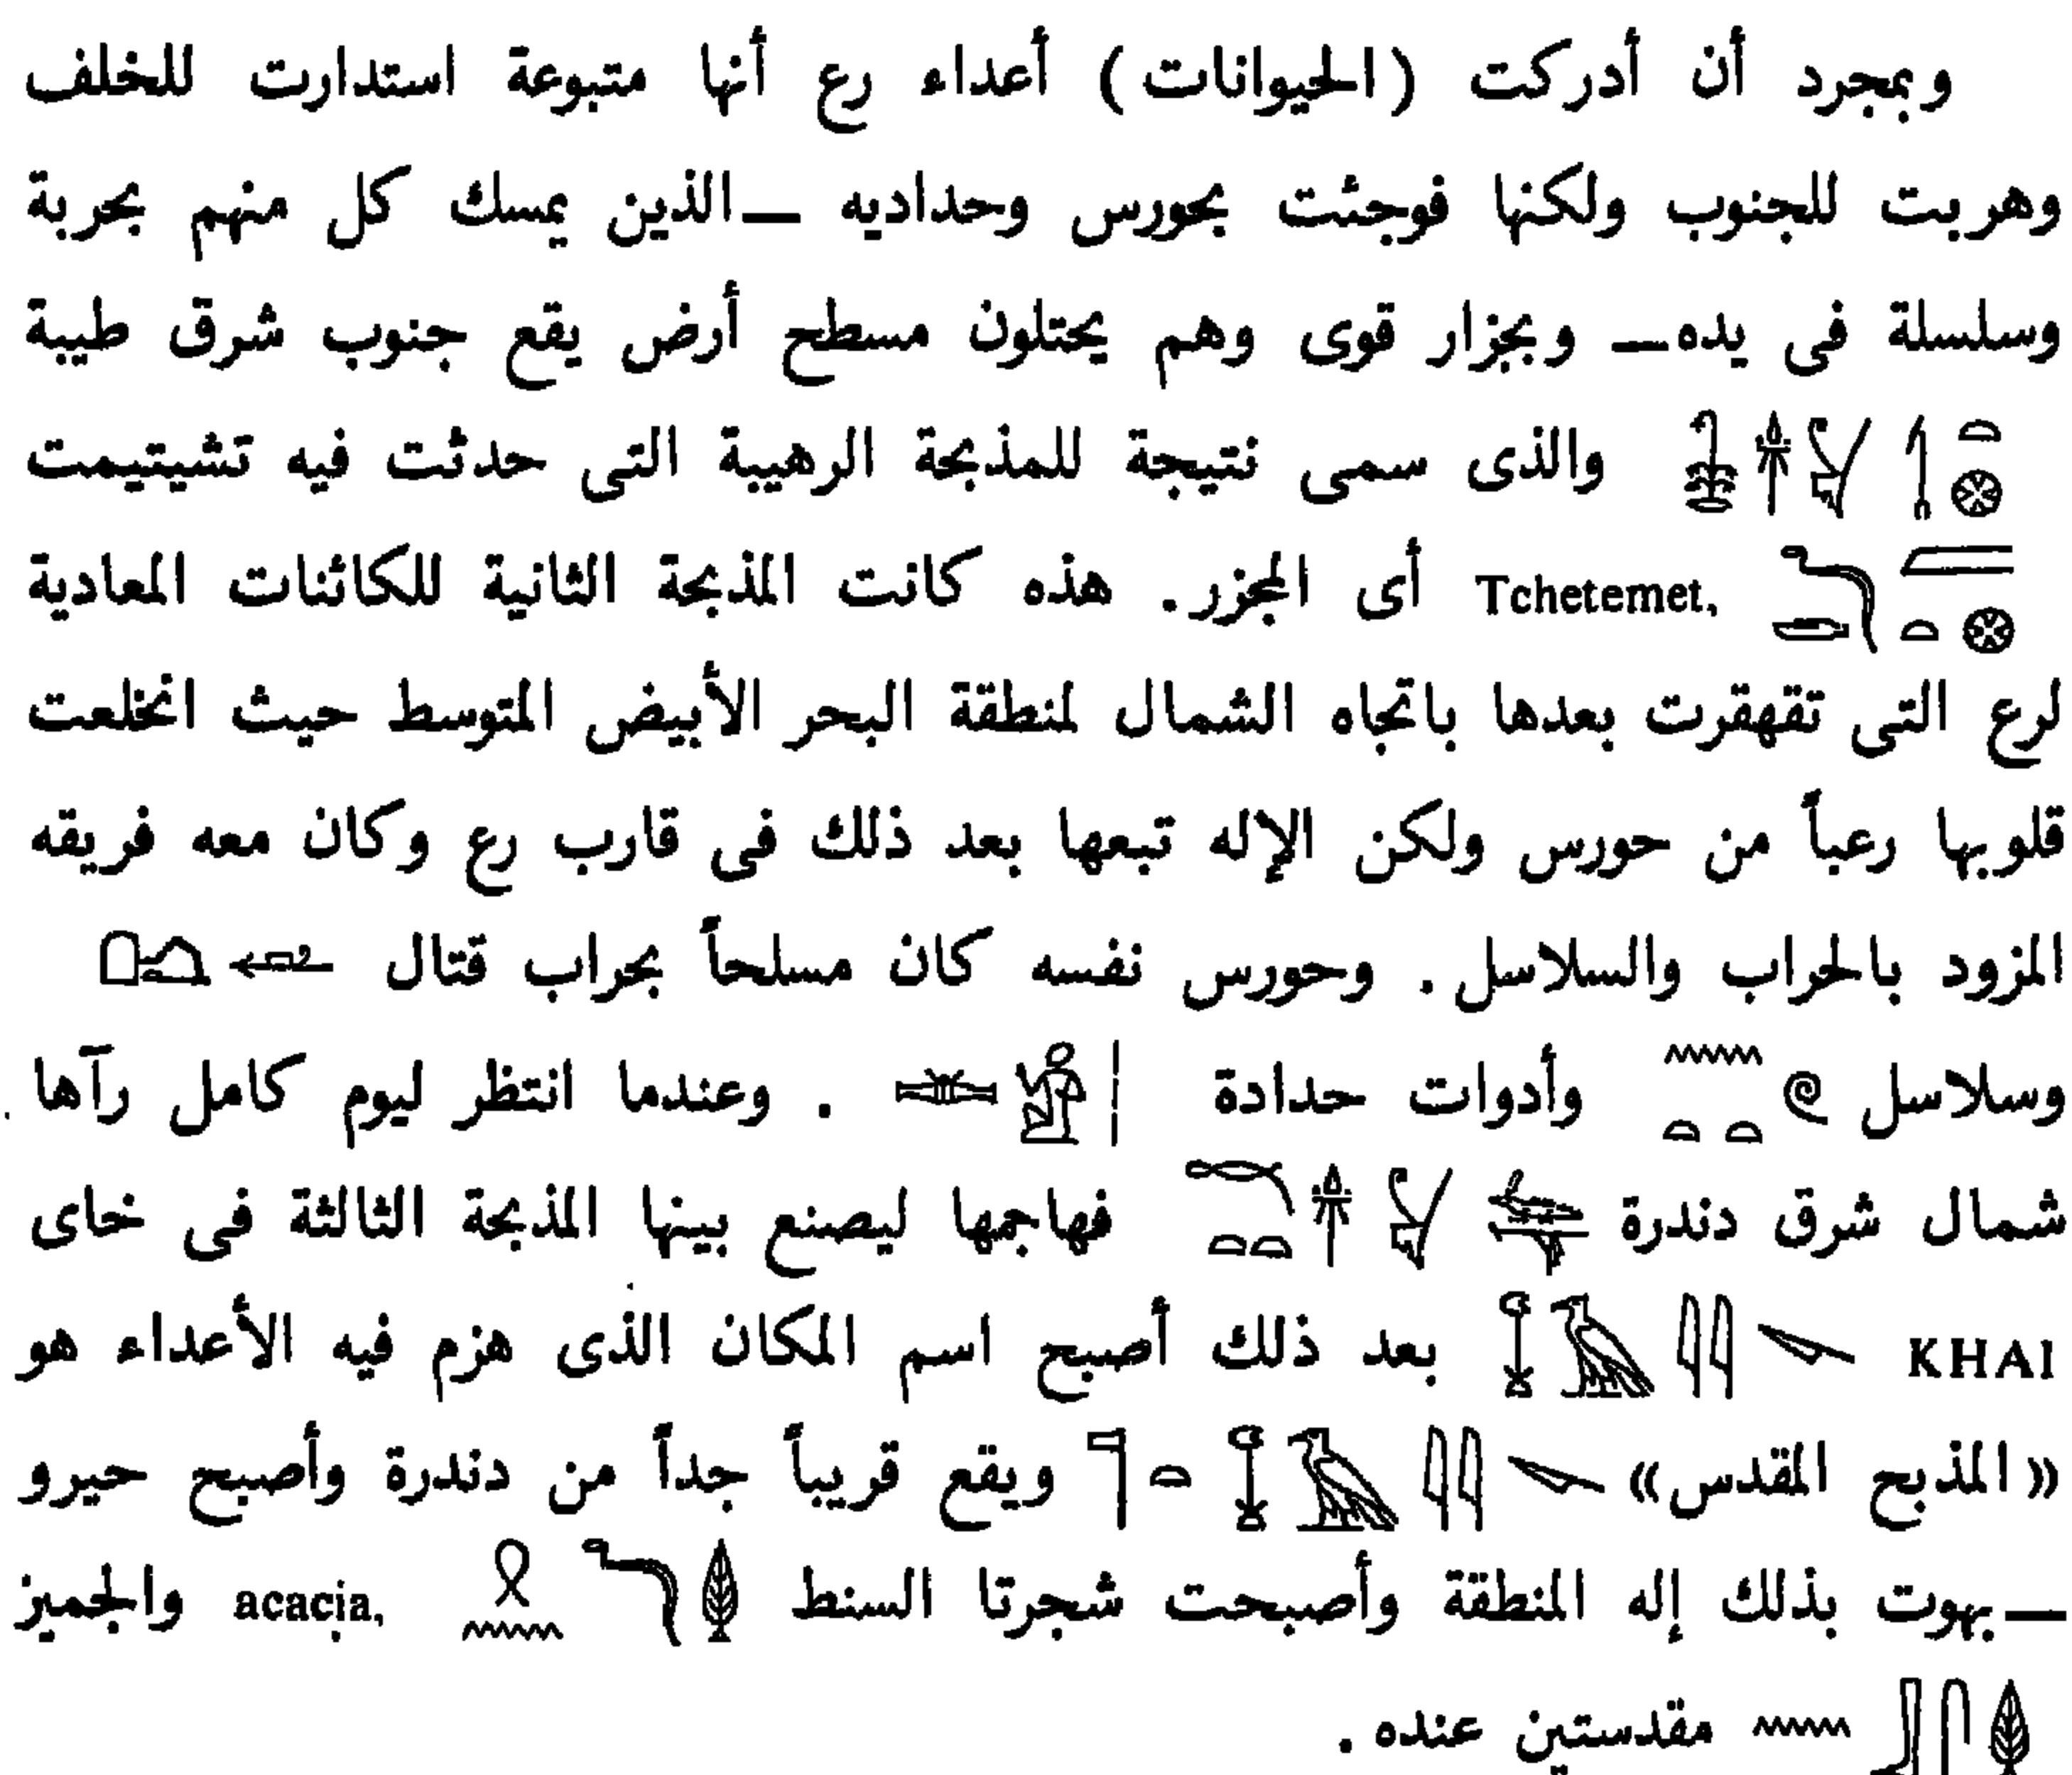 وبمجرد أن أدركت (الحيوانات) أعداء رع أنها متبوعة استدارت للخلف
وهربت للجنوب ولكنها فوجئت بحورس وحداديه —الذين يمسك كل منهم بحربة
وسلسلة فى يده— وبجزار قوى وهم يحتلون مسطح أرض يقع جنوب شرق طيبة
والذى سمى نتيجة للمذبحة الرهيبة التى حدثت فيه تشيتيمت
Tchetemet, أى المجزر. هذه كانت المذبحة الثانية للكائنات المعادية
لرع التى تقهقرت بعدها باتجاه الشمال لمنطقة البحر الأبيض المتوسط حيث انخلعت
قلوبها رعباً من حورس ولكن الإله تبعها بعد ذلك فى قارب رع وكان معه فريقه
المزود بالحراب والسلاسل. وحورس نفسه كان مسلحاً بحراب قتال
وسلاسل وأدوات حدادة . وعندما انتظر ليوم كامل رآها
شمال شرق دندرة فهاجمها ليصنع بينها المذبحة الثالثة فى خاى
KHAI بعد ذلك أصبح اسم المكان الذى هزم فيه الأعداء هو
«المذبح المقدس» ويقع قريباً جداً من دندرة وأصبح حيرو
—بهوت بذلك إله المنطقة وأصبحت شجرتا السنط acacia, والجميز
مقدستين عنده.